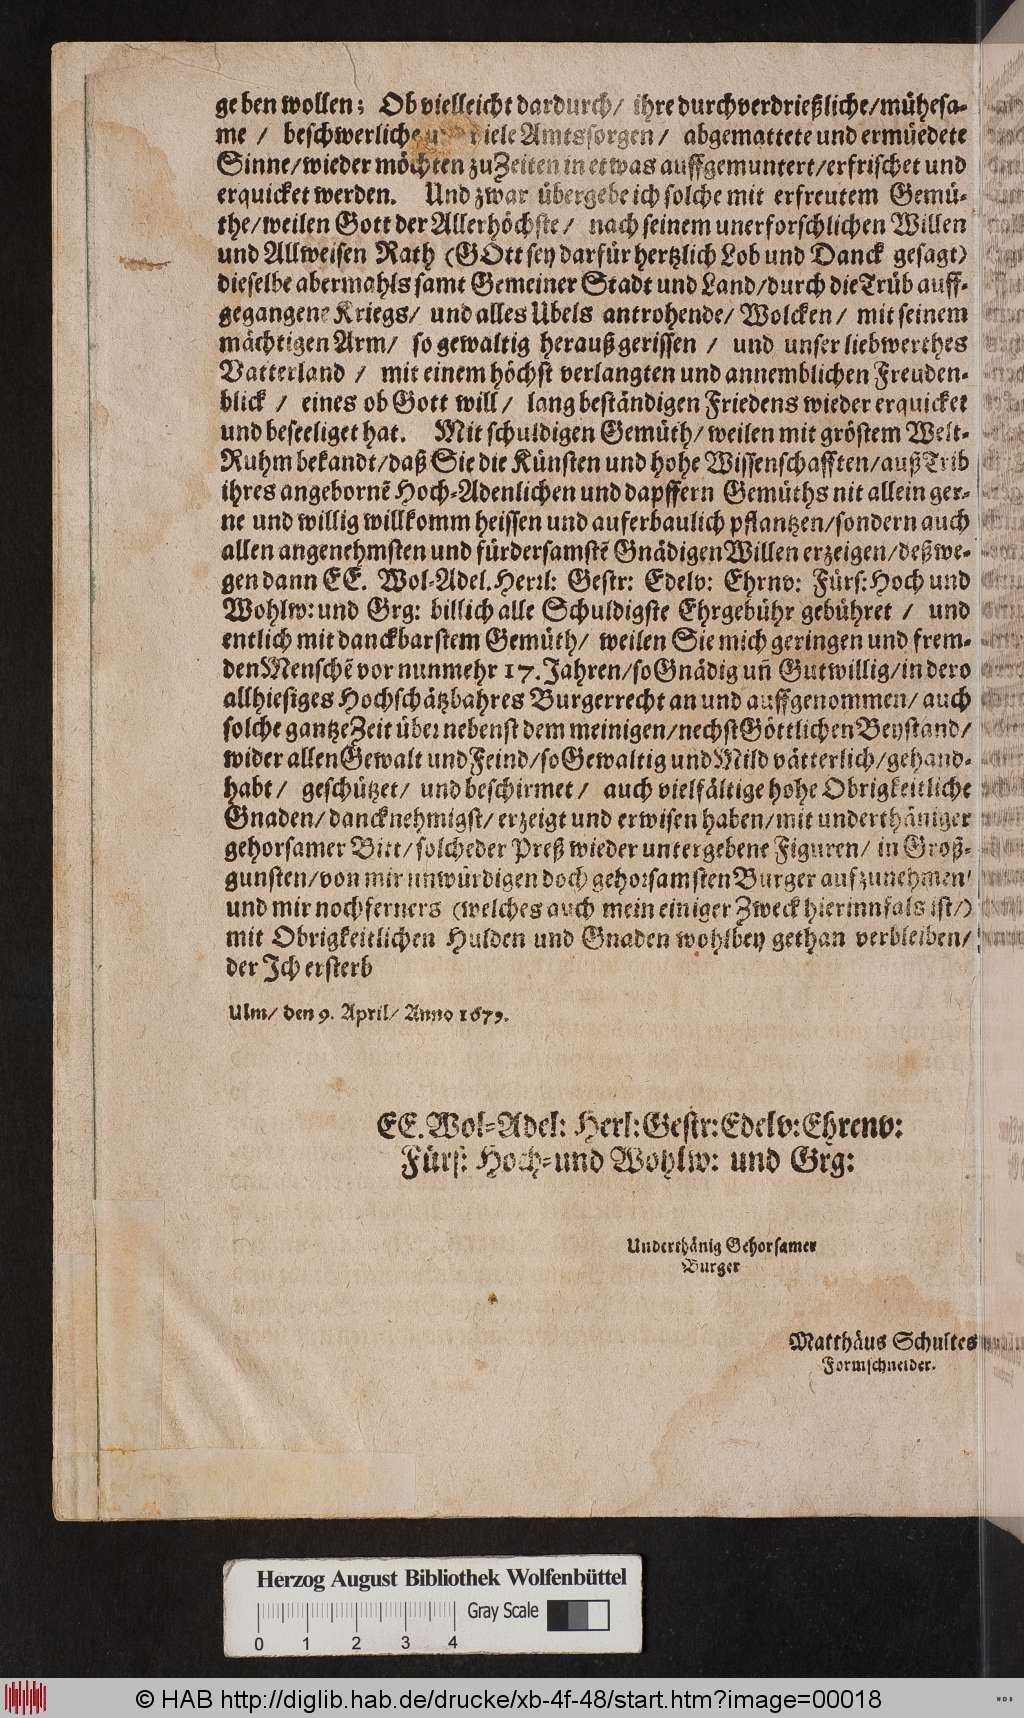 geben wollen; Ob vielleicht dardurch/ ihre durchverdrießliche/mühesa-
me / beschwerliche viele Amtssorgen/ abgemattete und ermüedete
Sinne/wieder möchten zu Zeiten in etwas auffgemuntert/erfrischet und
erquicket werden. Und zwar übergebe ich solche mit erfreutem Gemü-
the/weilen Gott der Allerhöchste/ nach seinem unerforschlichen Willen
und Allweisen Rath (GOtt sey darfür hertzlich Lob und Danck gesagt)
dieselbe abermahls samt Gemeiner Stadt und Land/durch die Trüb auff-
gegangene Kriegs/ und alles Ubels antrohende/ Wolcken/ mit seinem
mächtigen Arm/ so gewaltig heraußgerissen / und unser liebwerthes
Vatterland / mit einem höchst verlangten und annemblichen Freuden-
blick / eines ob Gott will/ lang beständigen Friedens wieder erquicket
und beseeliget hat. Mit schuldigen Gemüth/weilen mit gröstem Welt-
Ruhm bekandt/daß Sie die Künsten und hohe Wissenschafften/auß Trib
ihres angebornẽ Hoch-Adenlichen und dapffern Gemüths nit allein ger-
ne und willig willkomm heissen und auferbaulich pflantzen/sondern auch
allen angenehmsten und fürdersamstẽ Gnädigen Willen erzeigen/deßwe-
gen dann EE. Wol-Adel. Herrl: Gestr: Edelv: Ehrnv: Fürs: Hoch und
Wohlw: und Grg: billich alle Schuldigste Ehrgebühr gebühret / und
entlich mit danckbarstem Gemüth/ weilen Sie mich geringen und frem-
den Menschẽ vor nunmehr 17. Jahren/so Gnädig uñ Gutwillig/in dero
allhiesiges Hochschätzbahres Burgerrecht an und auffgenommen/ auch
solche gantze Zeit über nebenst dem meinigen/nechst Göttlichen Beystand/
wider allen Gewalt und Feind/so Gewaltig und Mild vätterlich/gehand-
habt/ geschützet/ und beschirmet/ auch vielfältige hohe Obrigkeitliche
Gnaden/dancknehmigst/ erzeigt und erwisen haben/mit underthäniger
gehorsamer Bitt/solche der Preß wieder untergebene Figuren/ in Groß-
gunsten/von mir unwürdigen doch gehorsamsten Burger aufzunehmen/
und mir noch ferners (welches auch mein einiger Zweck hierinnfals ist/)
mit Obrigkeitlichen Hulden und Gnaden wohlbey gethan verbleiben/
der Ich ersterb
Ulm/ den 9. April/ Anno 1679.
EE. Wol-Adel: Herl: Gestr: Edelv: Ehrenv:
Fürs: Hoch-und Wohlw: und Grg:
Underthänig Gehorsamer
Burger
Matthäus Schultes
Formschneider.
Herzog August Bibliothek Wolfenbüttel
Gray Scale
0 1 2 3 4
© HAB http://diglib.hab.de/drucke/xb-4f-48/start.htm?image=00018